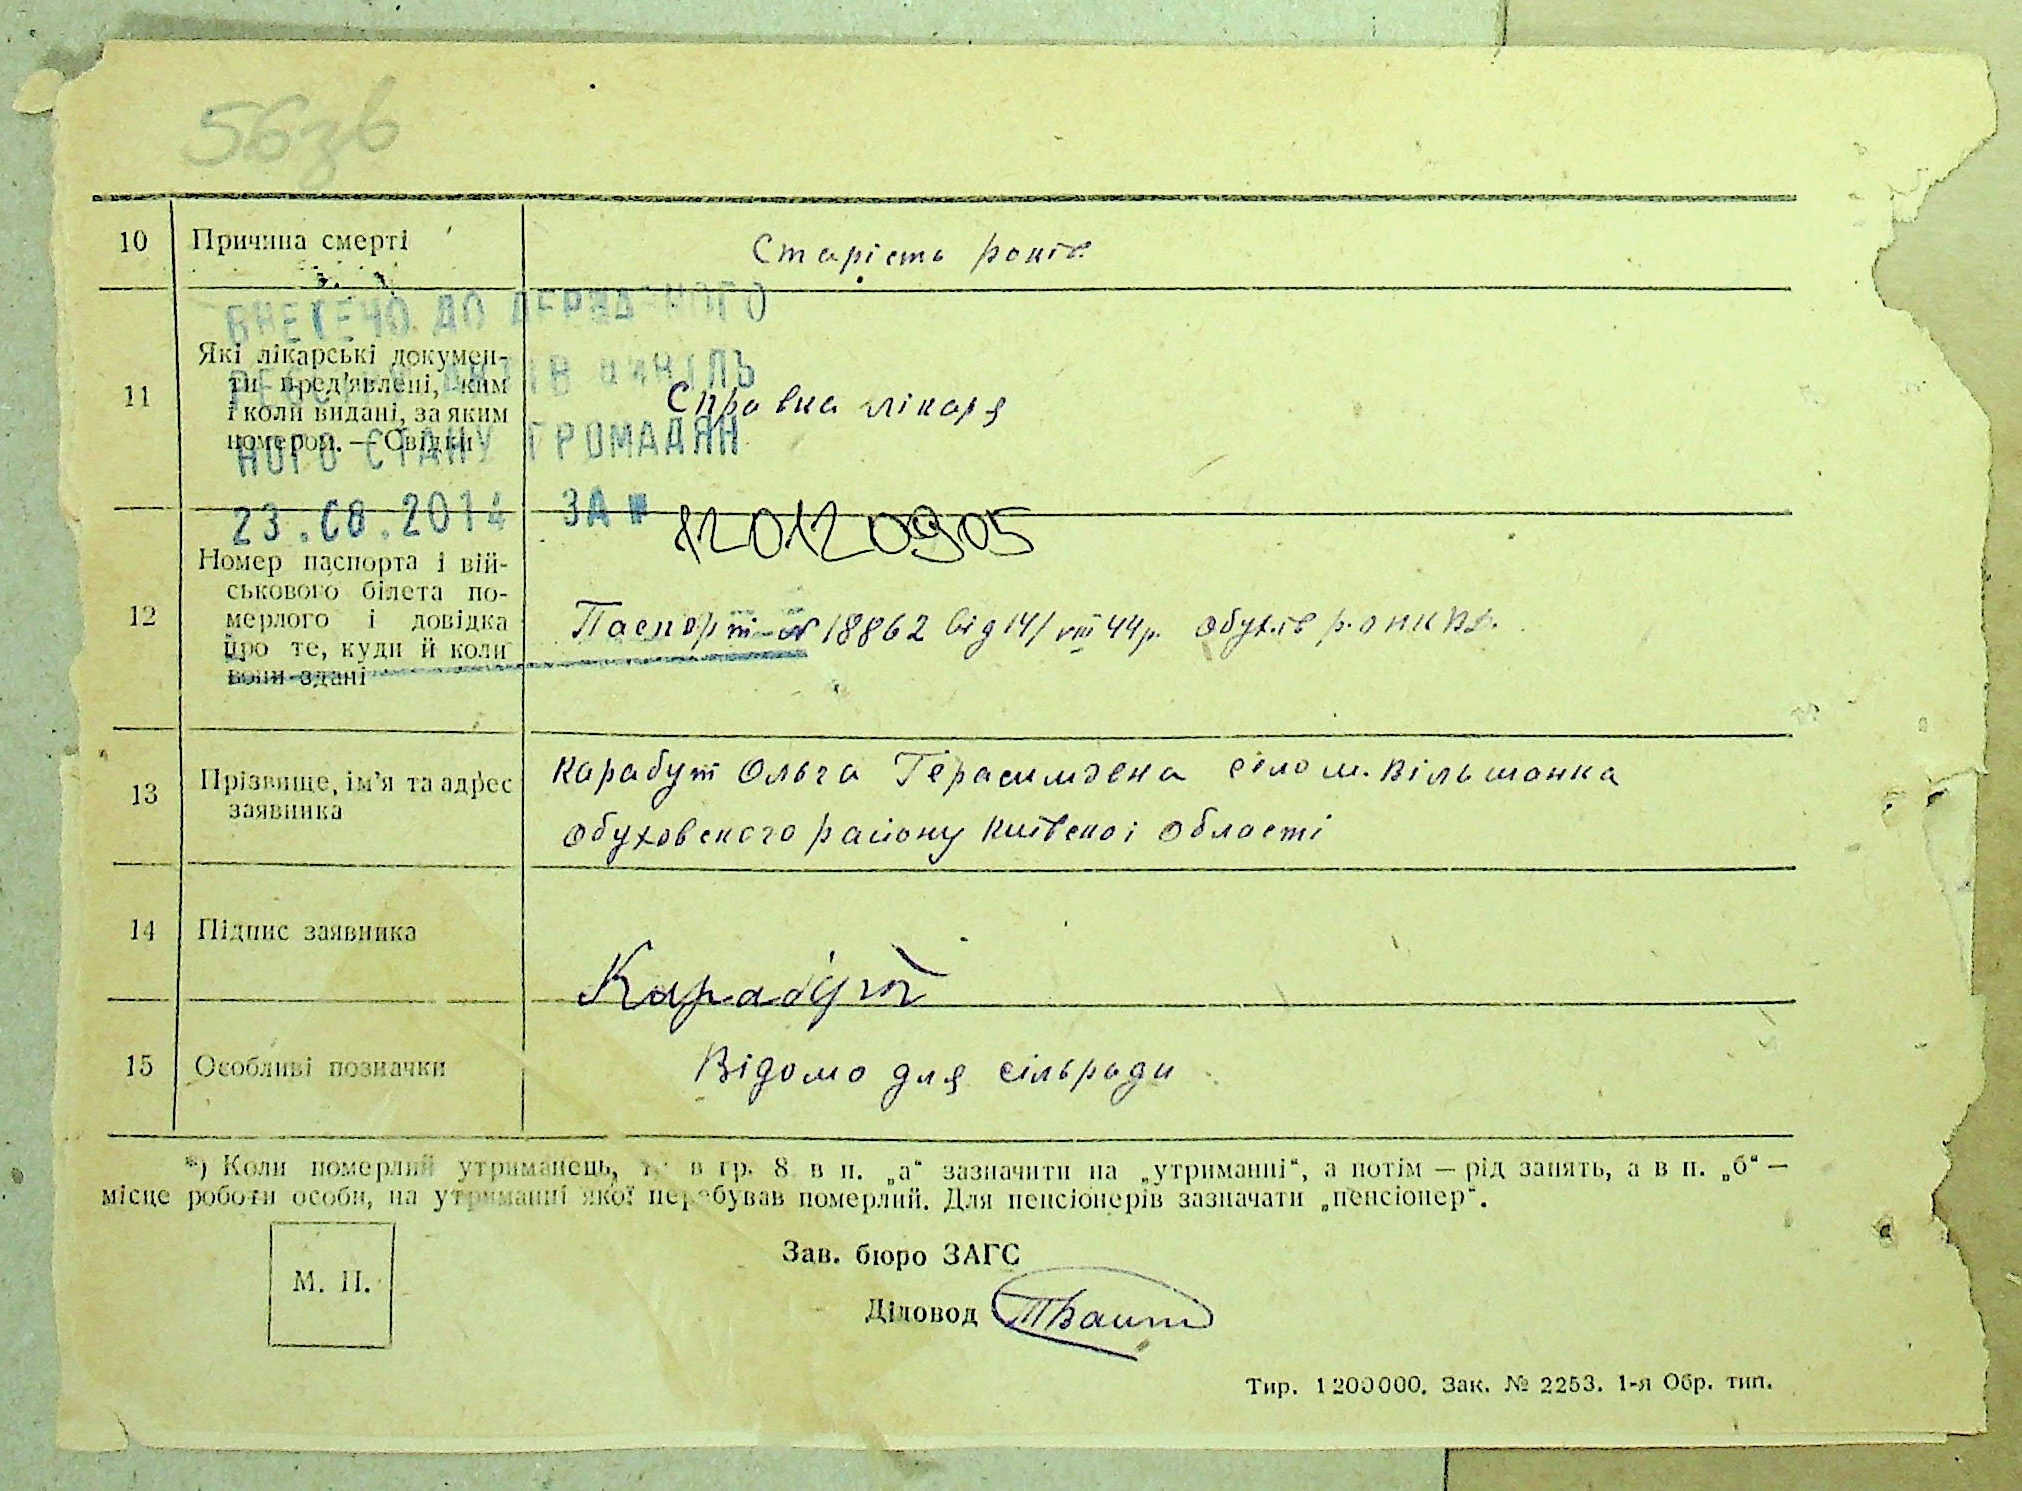 56зв
10 Причина смерті
Старість років
ВНЕСЕНО ДО ДЕРЖАВНОГО
РЕЄСТРУ АКТІВ ЦИВІЛЬ
НОГО СТАНУ ГРОМАДЯН
23.08.2014 ЗА № 120120905
11 Які лікарські докумен-
ти пред'явлені, ким
і коли видані, за яким
номером. — Свідки
Справка лікаря
12 Номер паспорта і вій-
ськового білета по-
мерлого і довідка
про те, куди й коли
вони здані
Паспорт № 18862 від 14/VIII 44р. Обухів р.о НКВД.
13 Прізвище, ім'я та адрес
заявника
Карабут Ольга Герасимовна село м. Вільшанка
Обуховского району Київскоі області
14 Підпис заявника
Карабут
15 Особливі позначки
Відомо для сільради
*) Коли померлий утриманець, то в гр. 8 в п. „а“ зазначити на „утриманні“, а потім — рід занять, а в п. „б“ —
місце роботи особи, на утриманні якої перебував померлий. Для пенсіонерів зазначати „пенсіонер“.
М. П.
Зав. бюро ЗАГС
Діловод
Тир. 1200000. Зак. № 2253. 1-я Обр. тип.